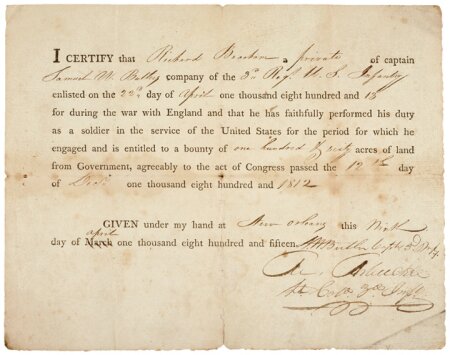 I CERTIFY that Richard a private of captain
Samuel W. Butler company of the 3rd Regt U. S. Infantry
enlisted on the 22nd day of April one thousand eight hundred and
for during the war with England and that he has faithfully performed his duty
as a soldier in the service of the United States for the period for which he
engaged and is entitled to a bounty of one hundred & sixty acres of land
from Government, agreeably to the act of Congress passed the 12th day
of one thousand eight hundred and 1812
GIVEN under my hand at New orleans this
april
day of March one thousand eight hundred and fifteen. Butler Capt 3rd Infy.
Lt Col 3rd Inft